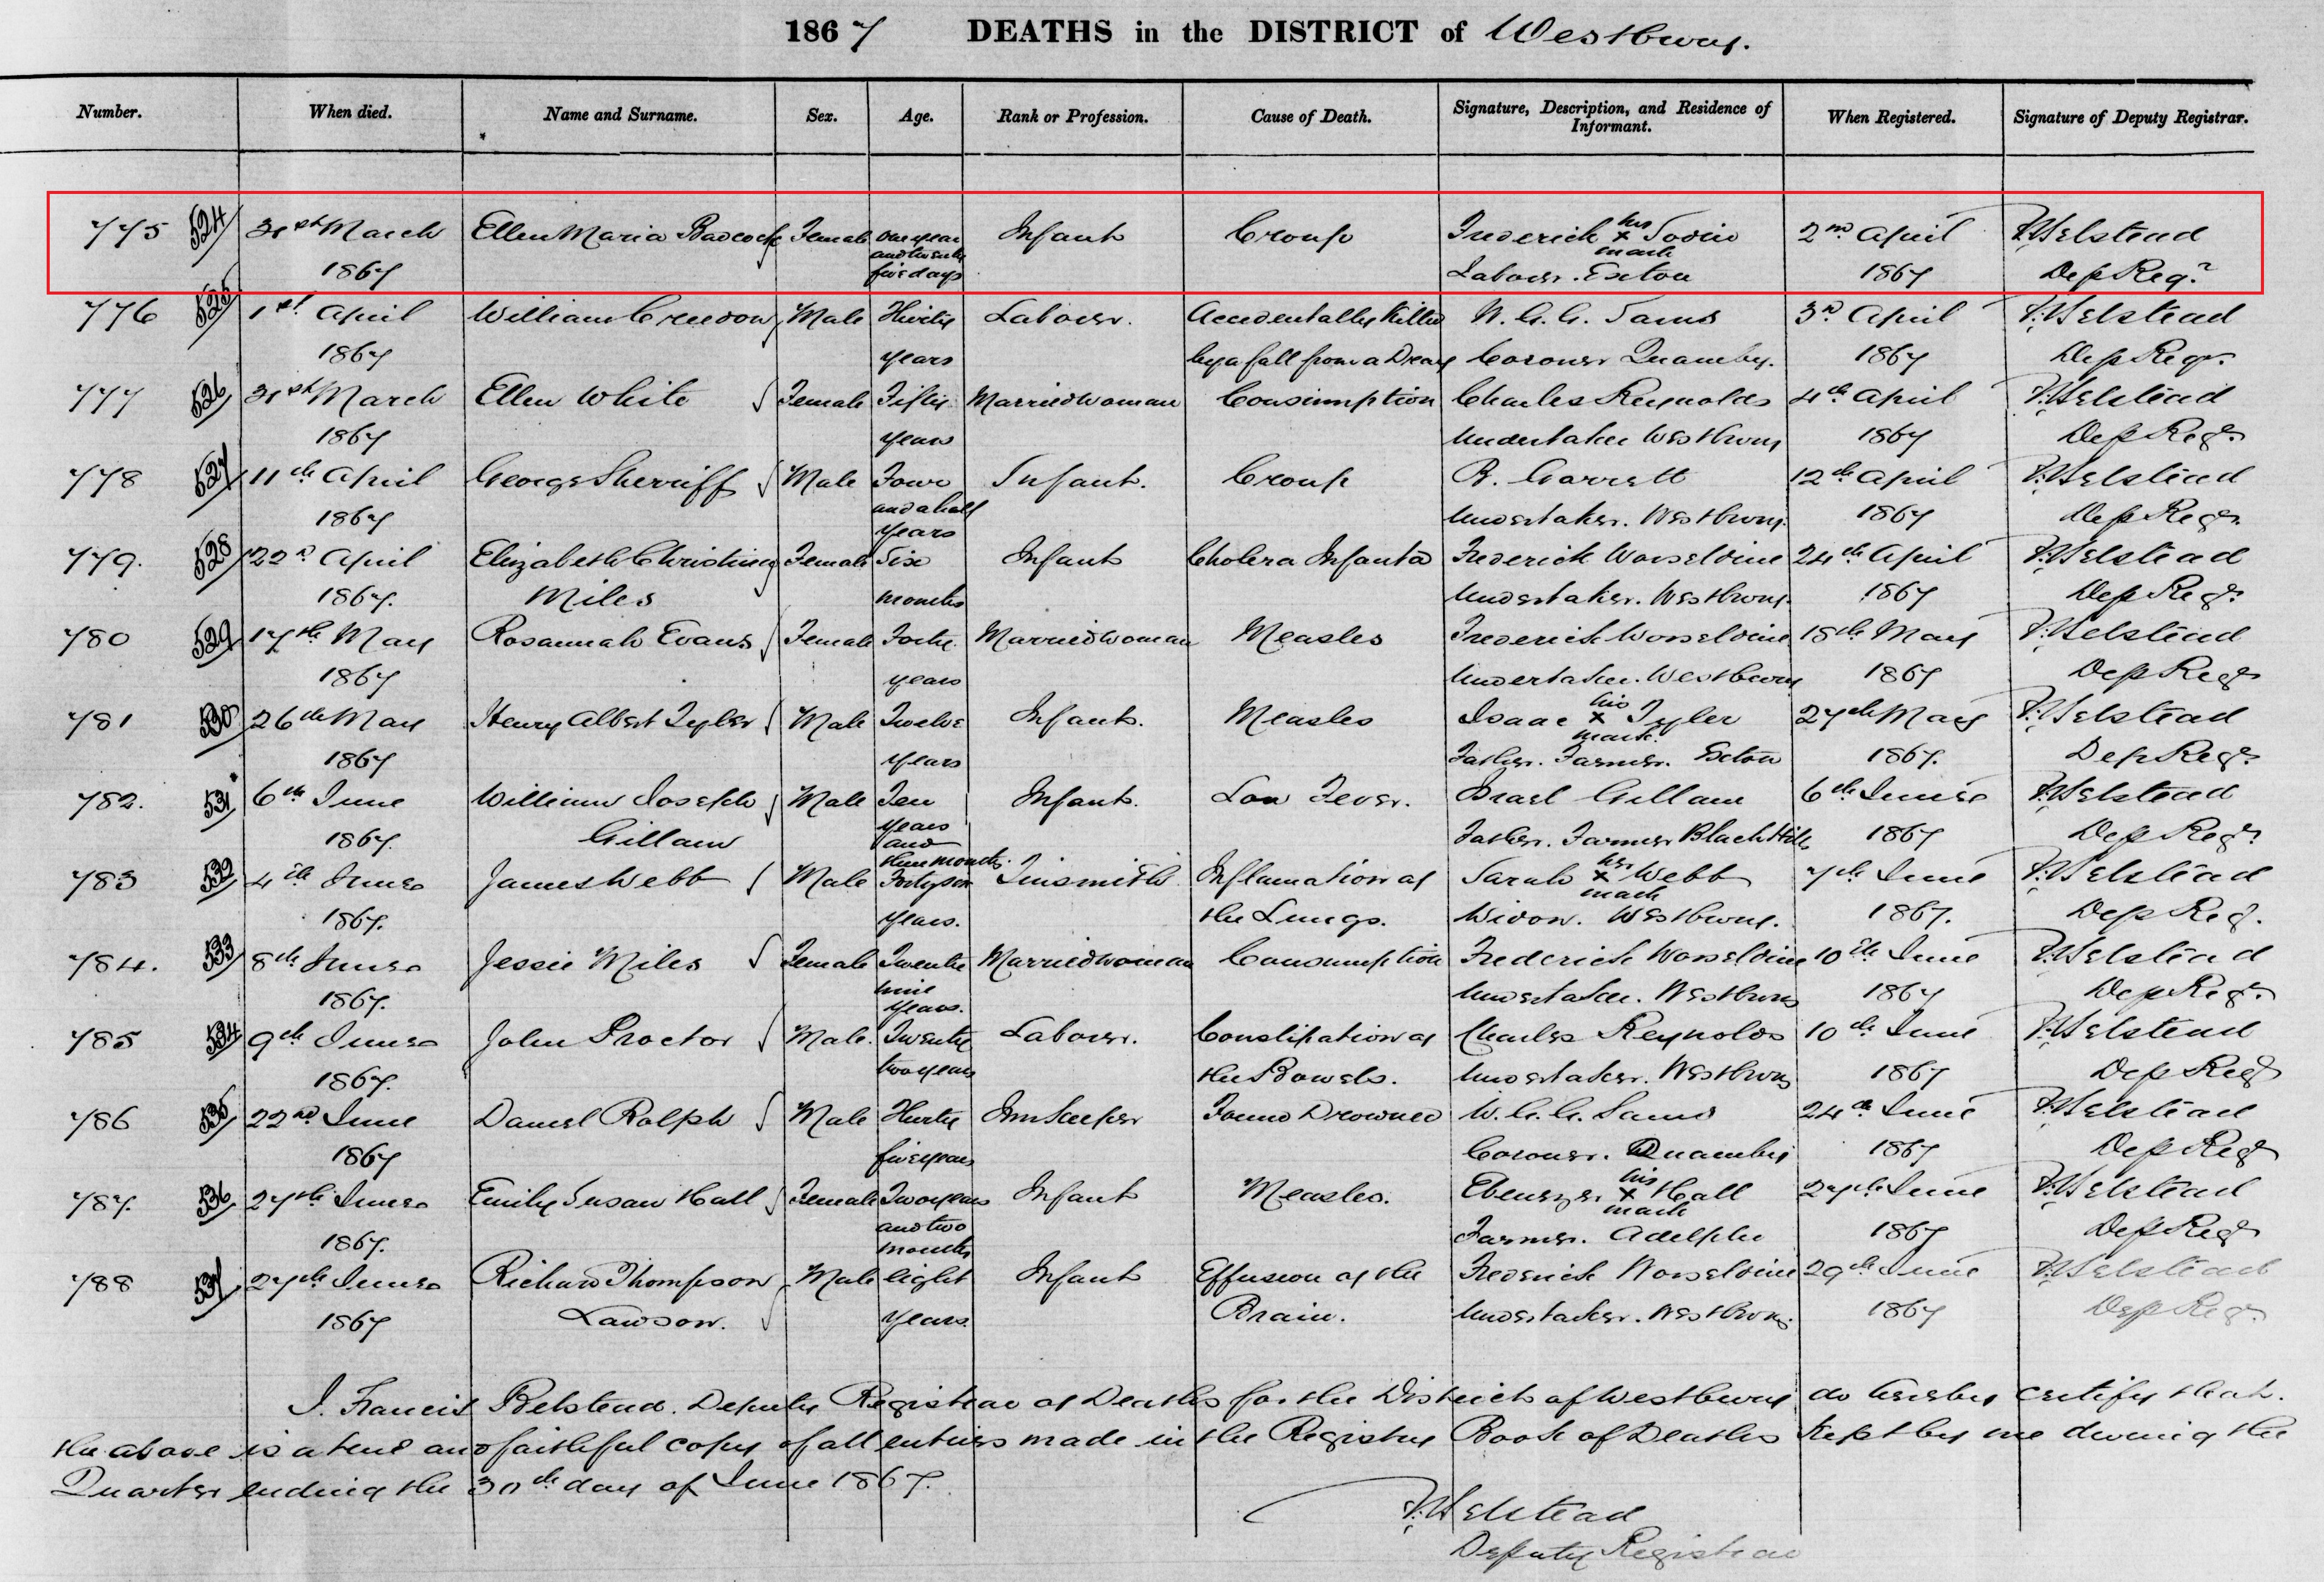 1867 DEATHS in the DISTRICT of Westbury.
Number. When died. Name and Surname. Sex. Age. Rank or Profession. Cause of Death. Signature, Description, and Residence of Informant. When Registered. Signature of Deputy Registrar.
775 524 31st March Ellen Maria Badcock Female One year Infant Croup Frederick his x mark 2nd April F. Belstead
1867 and twenty five days Labourer. Exton 1867 Dep Regr
776 525 1st April William Creedon Male Thirty Labourer. Accidentally Killed W. G. G. Sams 3rd April F. Belstead
1867 years by a fall from a Dray Coroner Quamby. 1867 Dep Regr.
777 526 31st March Ellen White Female Fifty Married woman Consumption Charles Reynolds 4th April F. Belstead
1867 years Undertaker Westbury 1867 Dep Regr
778 527 11th April George Sherriff Male Four Infant. Croup R. Garrett 12th April F. Belstead
1867 and a half years Undertaker. Westbury. 1867 Dep Regr
779. 528 22d April Elizabeth Christina Female Six Infant Cholera Infanta Frederick Worseldine 24th April F. Belstead
1867. Miles months Undertaker. Westbury. 1867 Dep Regr
780 529 17th May Rosannah Evans Female Forty Married woman Measles Frederick Worseldine 18th May F. Belstead
1867 years Undertaker. Westbury 1867 Dep Regr
781 530 26th May Henry Albert Tyler Male Twelve Infant. Measles Isaac his x mark. Tyler 27th May F. Belstead
1867 years Father. Farmer. Exton 1867. Dep Regr
782. 531 6th June William Joseph Male Ten Infant. Low Fever. Israel Gillam 6th June F. Belstead
1867. Gillam years and three months. Father. Farmer Black Hills 1867 Dep Regr
783 532 4th June James Webb Male Forty six Tinsmith Inflamation of Sarah her x mark Webb 7th June F. Belstead
1867. years. the Lungs. Widow. Westbury. 1867. Dep Reg.
784. 533 8th June Jessie Miles Female Twenty Married woman Consumption Frederick Worseldine 10th June F. Belstead
1867. nine years. Undertaker. Westbury 1867 Dep Regr.
785 534 9th June John Proctor Male. Twenty Labourer. Constipation of Charles Reynolds 10th June F. Belstead
1867. two years the Bowels. Undertaker. Westbury 1867 Dep Regr
786 535 22nd June Daniel Ralph Male Thirty Innkeeper Found Drowned W. G. G. Sams 24th June F. Belstead
1867 five years Coroner. Quamby 1867 Dep Regr
787. 536 27th June Emily Susan Hall Female Two years Infant Measles. Ebenezer his x mark Hall 27th June F. Belstead
1867. and two months Farmer. Adelphi 1867 Dep Regr
788 537 27th June Richard Thompson Male Eight Infant Effusion of the Frederick Worseldine 29th June F. Belstead
1867 Lawson. years. Brain. Undertaker. Westbury. 1867 Dep Regr.
I. Francis Belstead. Deputy Registrar of Deaths for the District of Westbury do hereby certify that.
the above is a true and faithful copy of all entries made in the Registry Book of Deaths kept by me during the
Quarter ending the 30th day of June 1867.
F. Belstead
Deputy Registrar